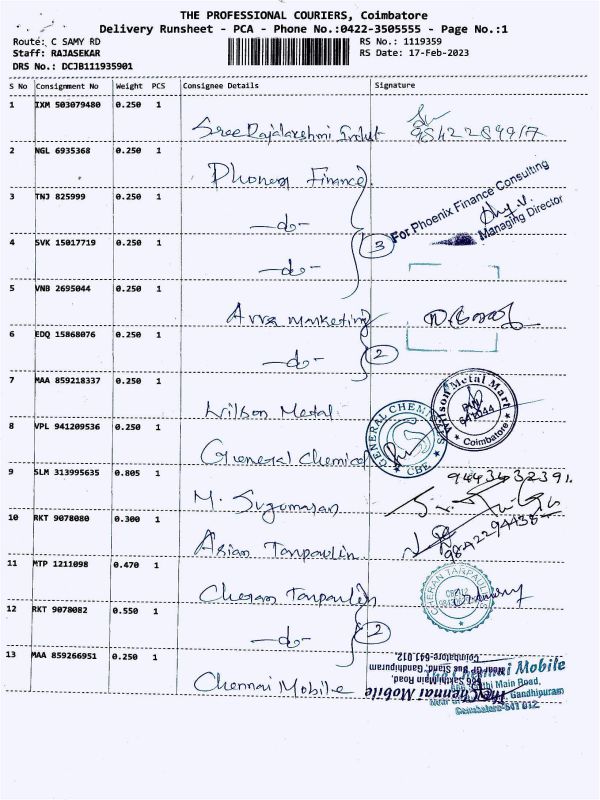 THE PROFESSIONAL COURIERS, Coimbatore
Delivery Runsheet - PCA - Phone No.:0422-3505555 - Page No.:1
Route: C SAMY RD
RS No.: 1119359
Staff: RAJASEKAR
RS Date: 17-Feb-2023
DRS No.: DCJB111935901
S No Consignment No Weight PCS Consignee Details Signature
1 IXM 503079480 0.250 1
Sree Rajalakshmi Indut
2 NGL 6935368 0.250 1
Phoneq Finance
3 TNJ 825999 0.250 1
-do-
For Phoenix Finance Consulting
Managing Director
4 SVK 15017719 0.250 1
3
-do-
5 VNB 2695044 0.250 1
Arra Marketing
6 EDQ 15868076 0.250 1
-do- 2
7 MAA 859218337 0.250 1
Wilson Metal
Wilson Metal Mart
Coimbatore
8 VPL 941209536 0.250 1
General Chemical
GENERAL CHEMICALS
CBE
9 SLM 313995635 0.805 1
9443432391.
M. Sugumaran
10 RKT 9078080 0.300 1
Asian Tarpaulin
9842294438
11 MTP 1211098 0.470 1
Cheran Tarpaulin
CHERAN TARPAULIN
12 RKT 9078082 0.550 1
-do- 2
13 MAA 859266951 0.250 1
Chennai Mobile
The Chennai Mobile
666 Sakthi Main Road,
Near GP Bus Stand, Gandhipuram
Coimbatore-641 012.
The Chennai Mobile
666 Sakthi Main Road,
Gandhipuram
Coimbatore-641 012